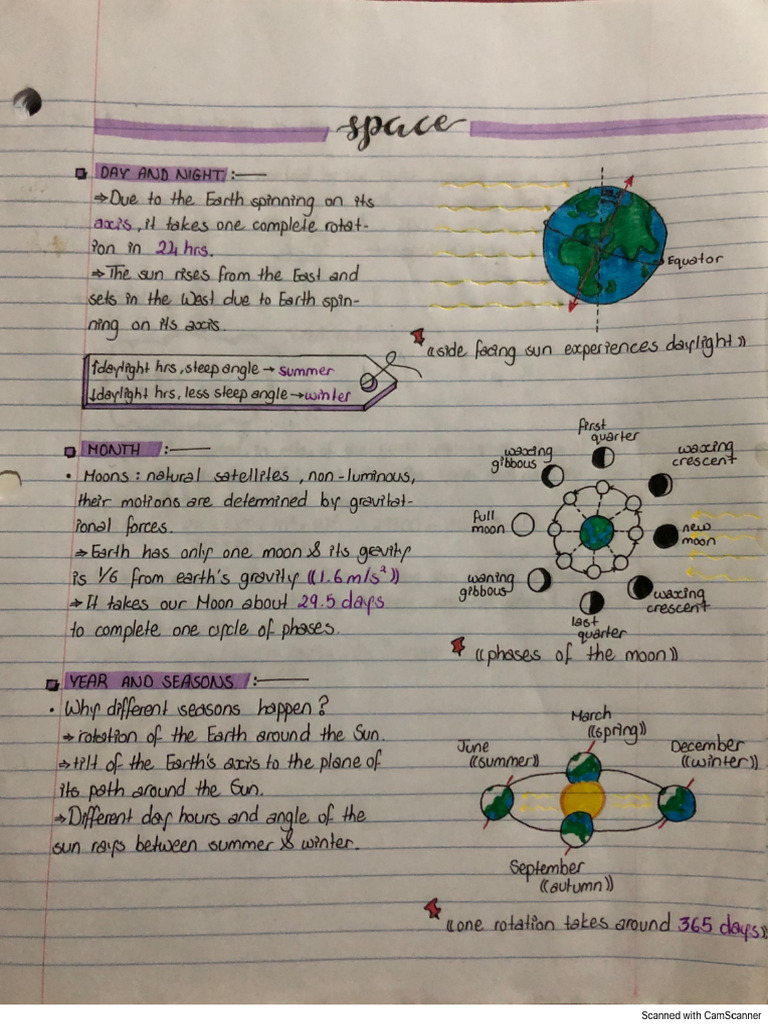 space
DAY AND NIGHT :—
⇒Due to the Earth spinning on its
axis, it takes one complete rotat-
ion in 24 hrs.
⇒The sun rises from the East and
sets in the West due to Earth spin-
ning on its axis.
Equator
((side facing sun experiences daylight))
↑daylight hrs, steep angle → summer
↓daylight hrs, less steep angle → winter
MONTH :—
• Moons : natural satellites, non-luminous,
their motions are determined by gravitat-
ional forces.
⇒Earth has only one moon & its gevity
is 1/6 from earth's gravity ((1.6 m/s²))
⇒It takes our Moon about 29.5 days
to complete one circle of phases.
first
quarter
waxing
gibbous
waxing
crescent
full
moon
new
moon
waning
gibbous
waxing
crescent
last
quarter
((phases of the moon))
YEAR AND SEASONS :—
• Why different seasons happen?
⇒rotation of the Earth around the Sun.
⇒tilt of the Earth's axis to the plane of
its path around the Sun.
⇒Different day hours and angle of the
sun rays between summer & winter.
March
((spring))
June
((summer))
December
((winter))
September
((autumn))
((one rotation takes around 365 days))
Scanned with CamScanner